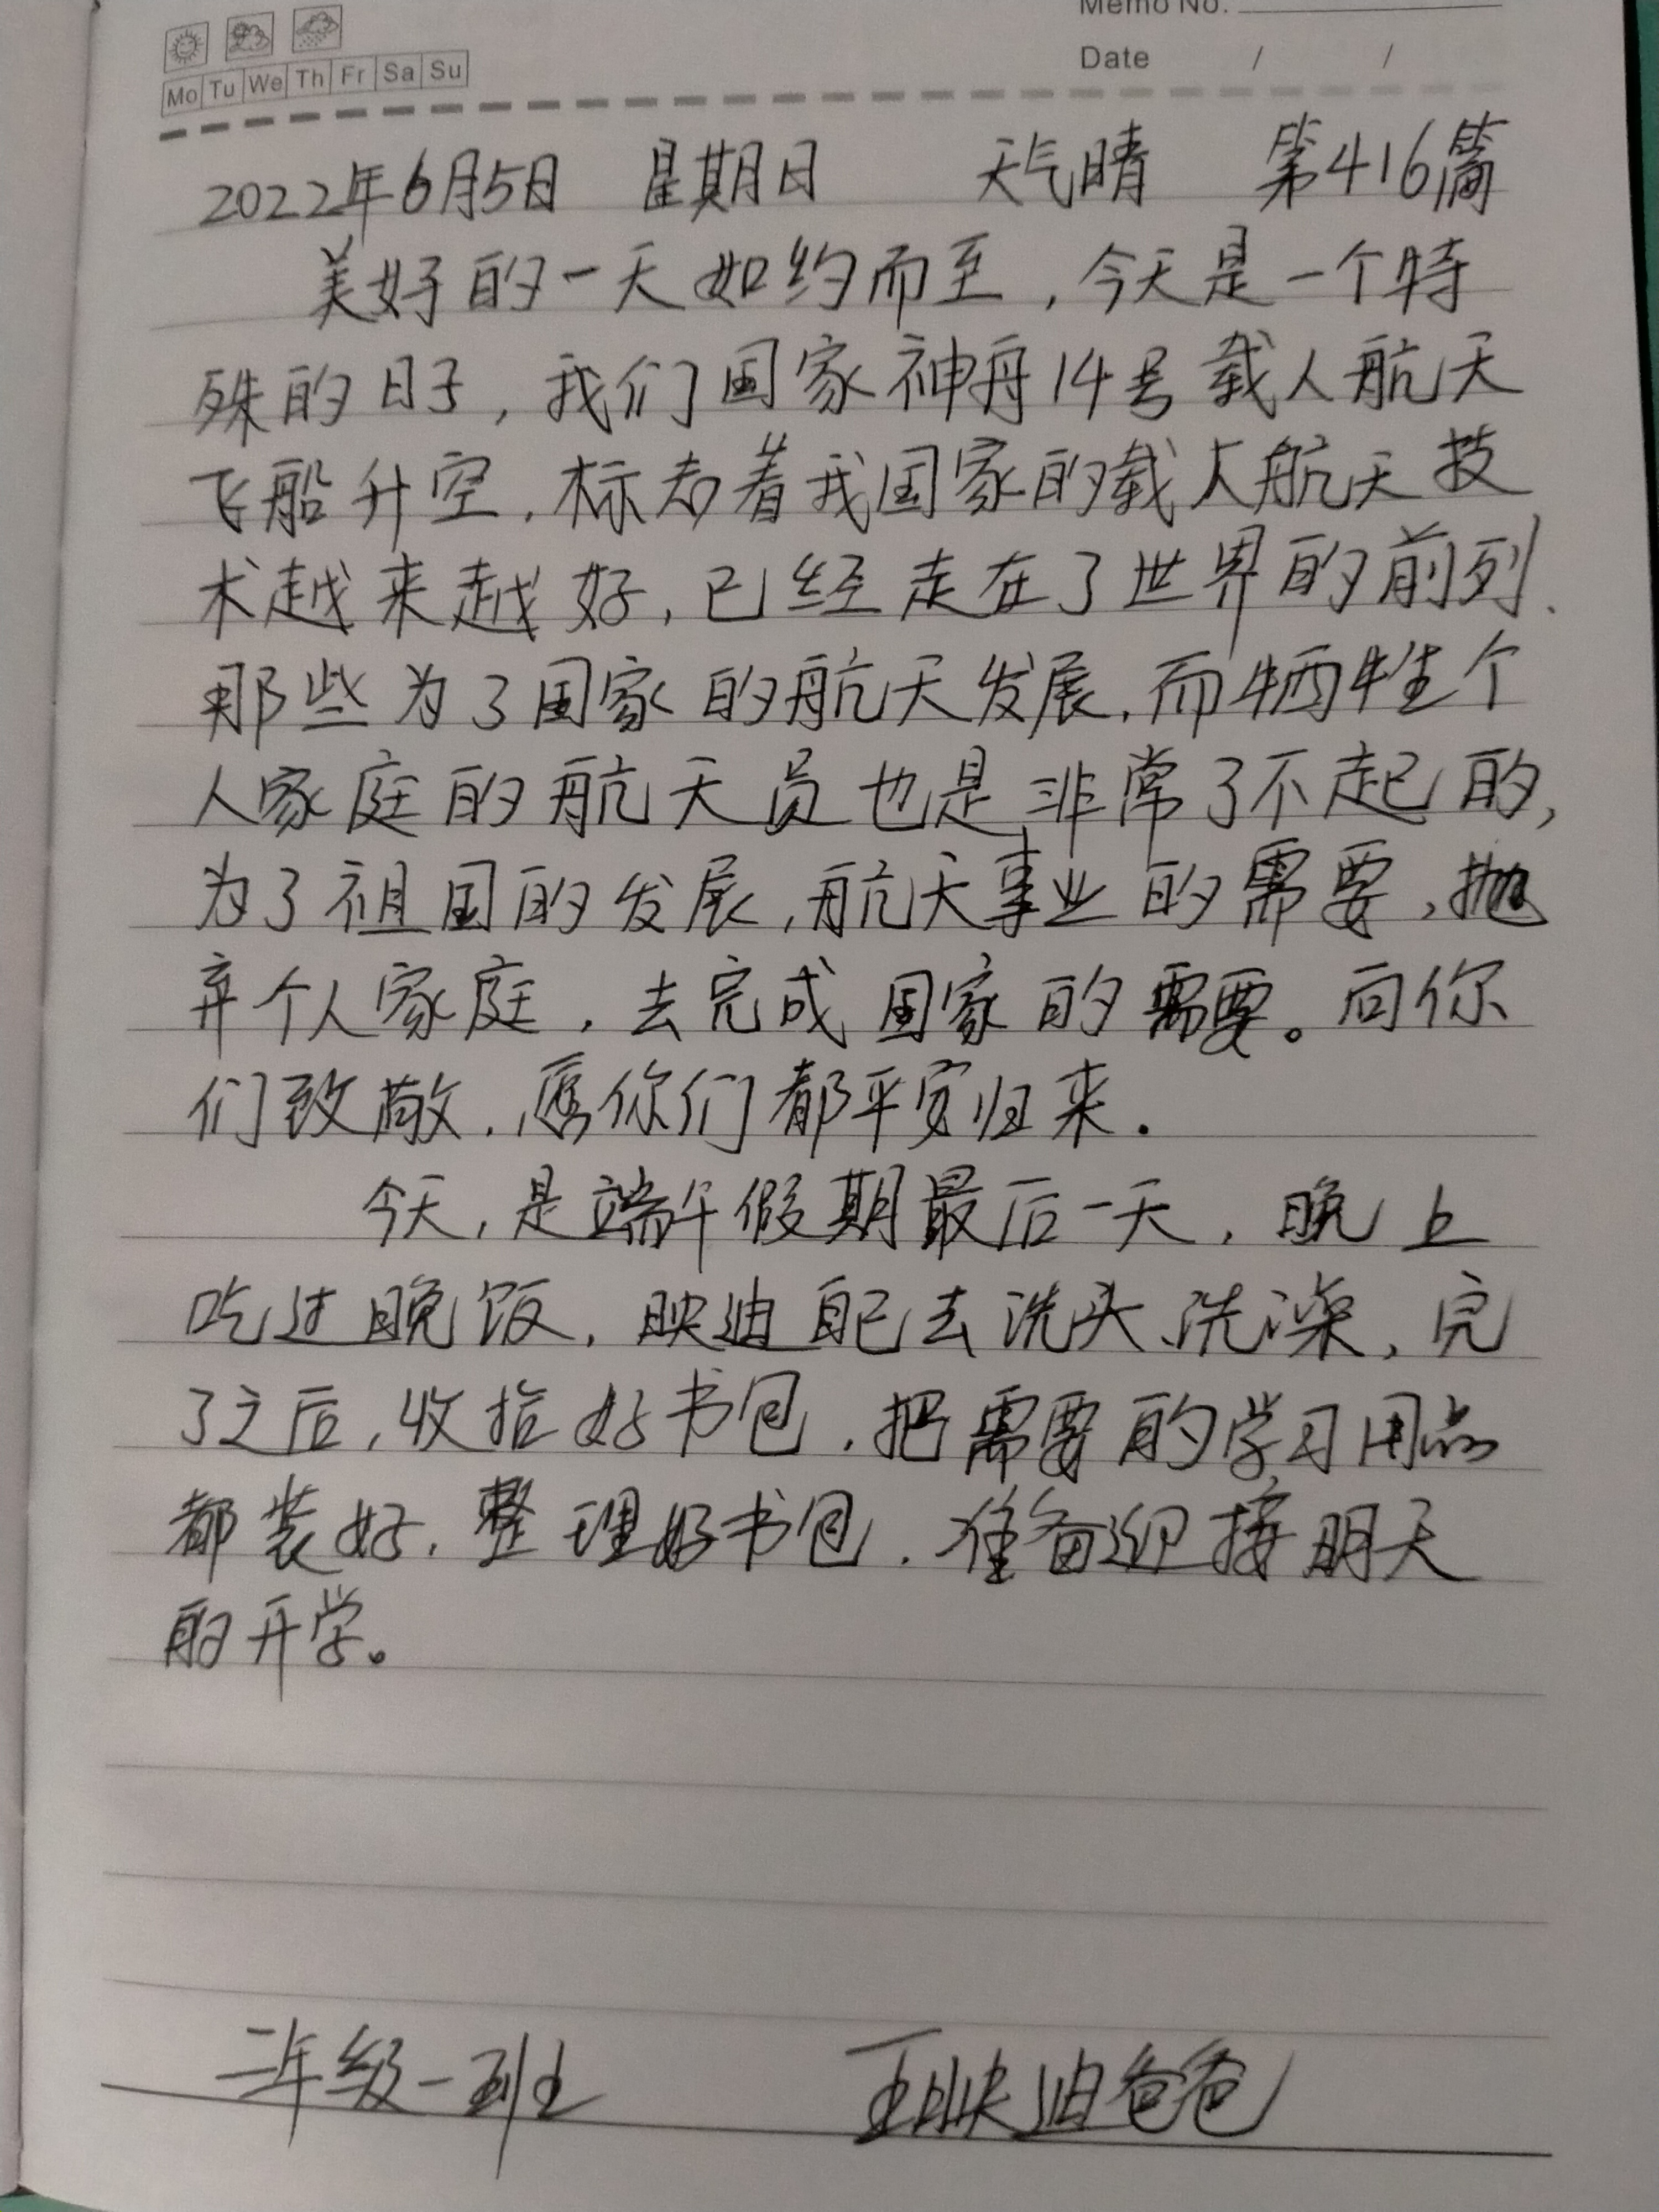 Memo No.
Date / /
Mo Tu We Th Fr Sa Su
2022年6月5日 星期日 天气晴 第416篇
美好的一天如约而至,今天是一个特
殊的日子,我们国家神舟14号载人航天
飞船升空,标志着我国家的载人航天技
术越来越好,已经走在了世界的前列.
那些为了国家的航天发展,而牺牲个
人家庭的航天员也是非常了不起的,
为了祖国的发展,航天事业的需要,抛
弃个人家庭,去完成国家的需要。向你
们致敬,愿你们都平安归来.
今天,是端午假期最后一天,晚上
吃过晚饭,映迪自己去洗头、洗澡,完
了之后,收拾好书包,把需要的学习用品
都装好,整理好书包,准备迎接明天
的开学。
二年级一班 王映迪爸爸